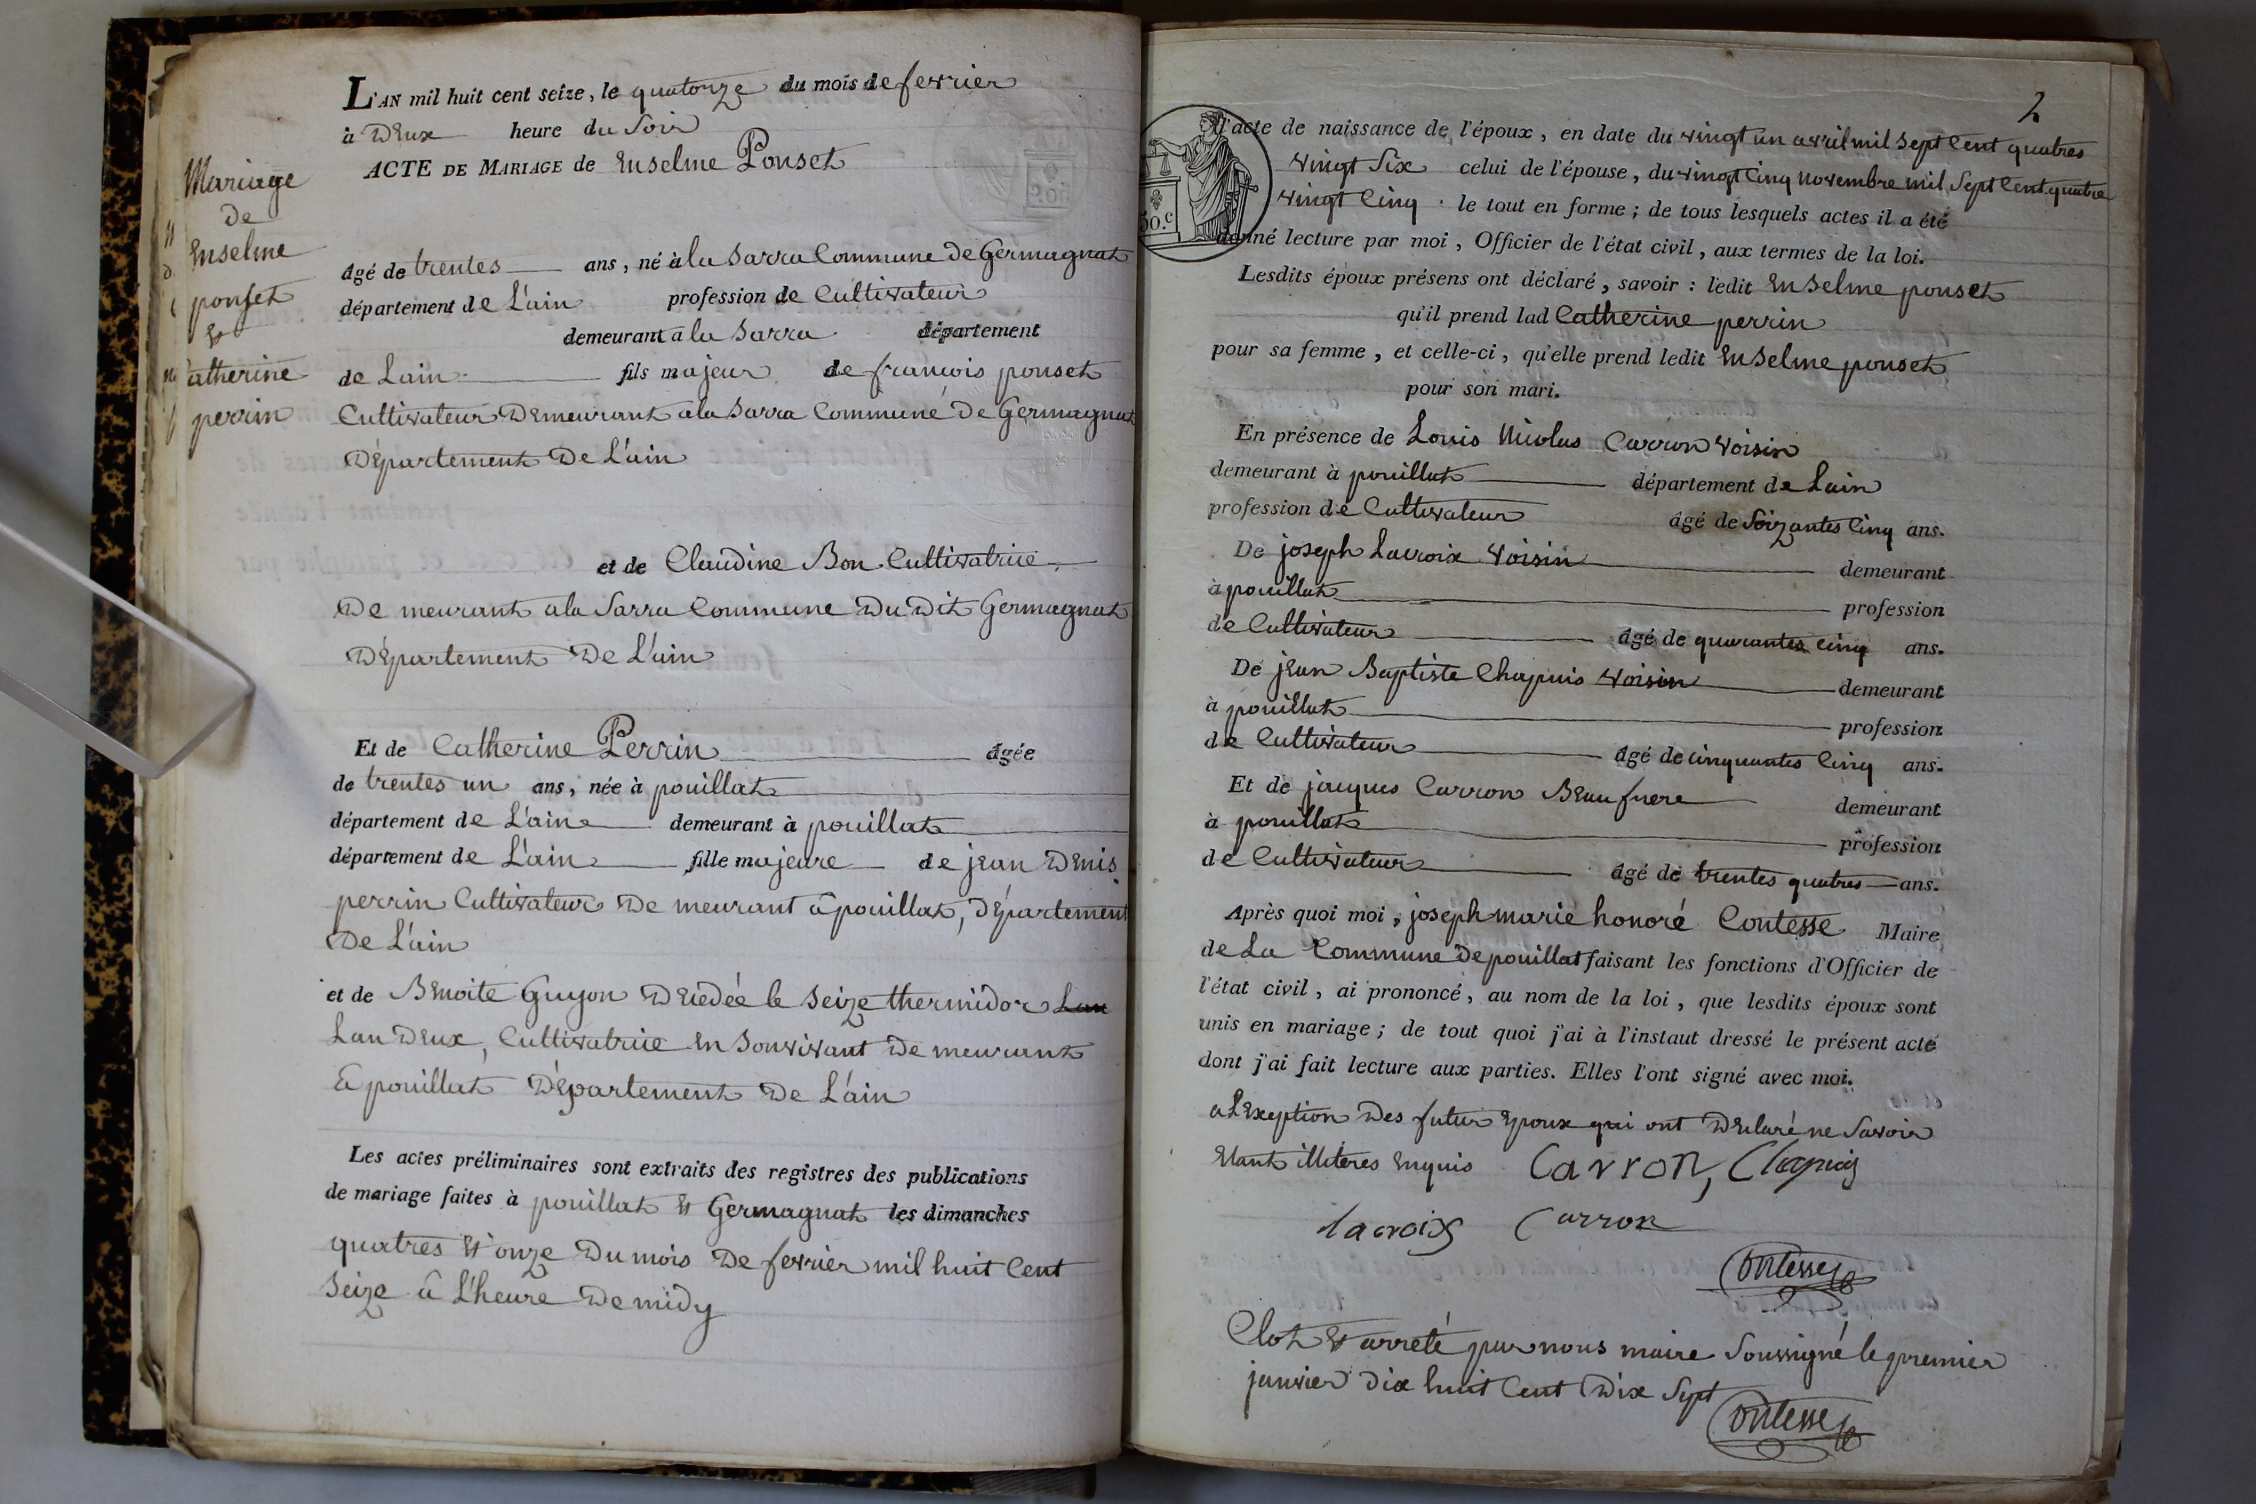 L'AN mil huit cent seize, le quatorze du mois de fevrier
à Deux heure du Soir
ACTE DE MARIAGE de Enselme Ponset
Mariage
de
Enselme
ponset
Et
Catherine
perrin
âgé de trentes ans, né à la Sarra Commune de Germagnat
département de L'ain profession de Cultivateur
demeurant a la Sarra département
de Lain fils majeur de francois ponset
Cultivateur Demeurant a la Sarra Commune De Germagnat
Département De L'ain
et de Claudine Bon Cultivatrice
De meurant a la Sarra Commune Du Dit Germagnat
Département De L'ain
Et de Catherine Perrin âgée
de trentes un ans, née à pouillat
département de L'ain demeurant à pouillat
département de L'ain fille majeure de jean Denis
perrin Cultivateur De meurant a pouillat, Département
De L'ain
et de Benoite Guyon Decedée le Seize thermidor Lan
Lan Deux, Cultivatrice En Sonvivant De meurant
a pouillat Département De L'ain
Les actes préliminaires sont extraits des registres des publications
de mariage faites à pouillat Et Germagnat les dimanches
quatres Et onze Du mois De fevrier mil huit Cent
Seize a L'heure De midy
2
l'acte de naissance de l'époux, en date du vingt un avril mil Sept Cent quatres
vingt Six celui de l'épouse, du vingt Cinq novembre mil Sept Cent quatre
vingt Cinq le tout en forme; de tous lesquels actes il a été
50.c
donné lecture par moi, Officier de l'état civil, aux termes de la loi.
Lesdits époux présens ont déclaré, savoir: ledit Enselme ponset
qu'il prend lad Catherine perrin
pour sa femme, et celle-ci, qu'elle prend ledit Enselme ponset
pour son mari.
En présence de Louis Nicolas Carron Voisin
demeurant à pouillat département de Lain
profession de Cultivateur âgé de Soizantes Cinq ans.
De joseph Lacroix Voisin demeurant
à pouillat profession
de Cultivateur âgé de quarantes cinq ans.
De jean Baptiste Chapuis Voisin demeurant
à pouillat profession
de Cultivateur âgé de cinquantes Cinq ans.
Et de jacques Carron Beau frere demeurant
à pouillat profession
de Cultivateur âgé de trentes quatres ans.
Après quoi moi, joseph marie honoré Contesse Maire
de La Commune De pouillat faisant les fonctions d'Officier de
l'état civil, ai prononcé, au nom de la loi, que lesdits époux sont
unis en mariage; de tout quoi j'ai à l'instaut dressé le présent acte
dont j'ai fait lecture aux parties. Elles l'ont signé avec moi.
a L'Exeption Des futur Epoux qui ont Declaré ne Savoir
Etant illiteres Enquis Carron, Chapuis
lacroix Carron
Contesse
Clot Et arreté par nous maire Soussigné le premier
janvier dix huit Cent Dix Sept
Contesse